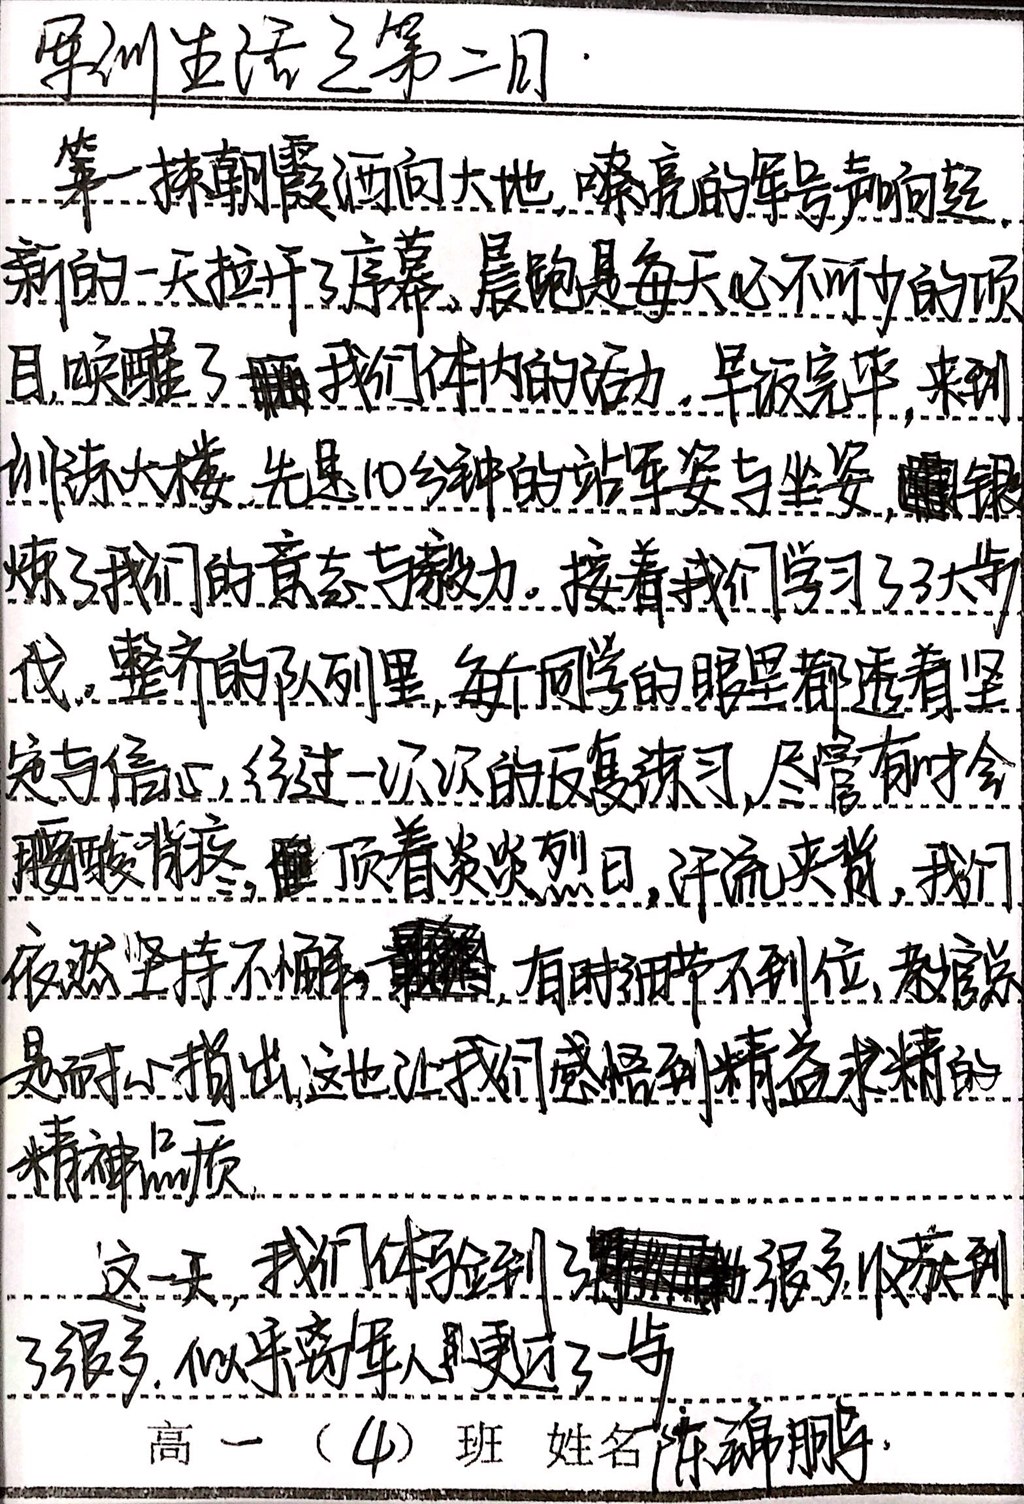 军训生活之第二日.
第一抹朝霞洒向大地,嘹亮的军号声响起,
新的一天拉开了序幕。晨跑是每天必不可少的项
目,唤醒了我们体内的活力.早饭完毕,来到
训练大楼.先是10分钟的站军姿与坐姿,锻
炼了我们的意志与毅力。接着我们学习了3大步
伐。整齐的队列里,每个同学的眼里都透着坚
定与信心,经过一次次的反复练习,尽管有时会
腰酸背疼,顶着炎炎烈日,汗流夹背,我们
依然坚持不懈,有时细节不到位,教官总
是耐心指出,这也让我们感悟到精益求精的
精神品质.
这一天,我们体验到了很多,收获到
了很多.似乎离军人更近了一步
高一(4)班 姓名 陈锦鹏.